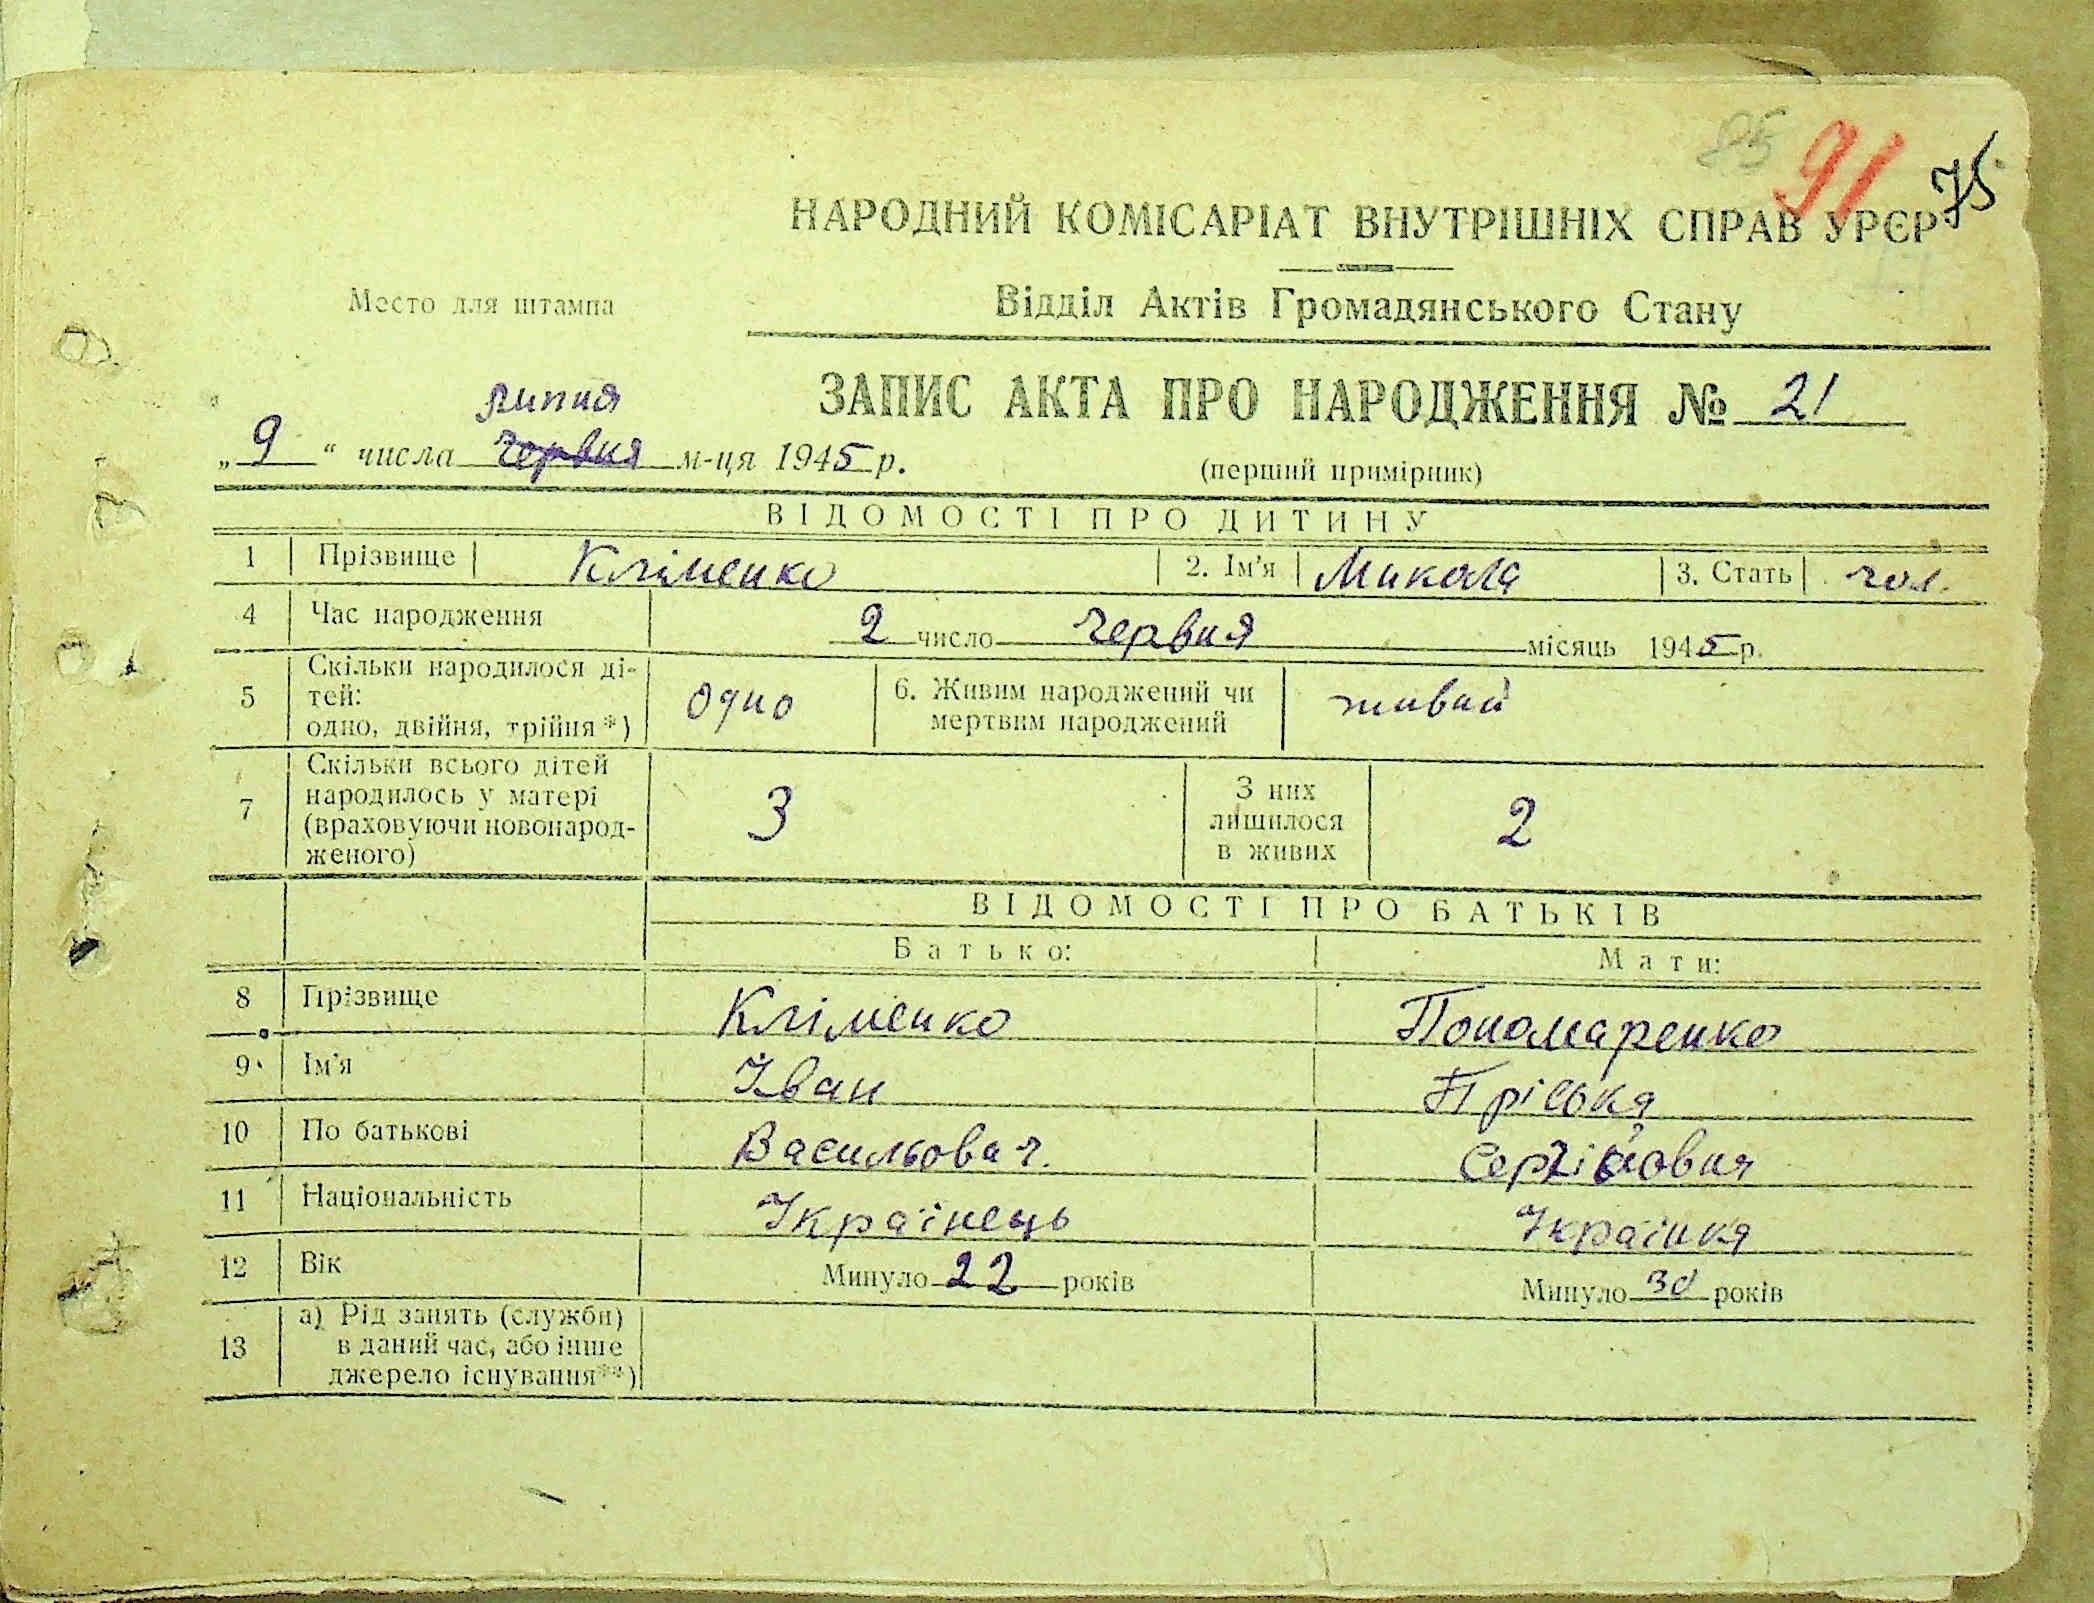 85 91 75
НАРОДНИЙ КОМІСАРІАТ ВНУТРІШНІХ СПРАВ УРЄР
Место для штампа
Відділ Актів Громадянського Стану
ЗАПИС АКТА ПРО НАРОДЖЕННЯ № 21
липня
„9“ числа червня м-ця 1945 р.
(перший примірник)
ВІДОМОСТІ ПРО ДИТИНУ
1 Прізвище Кліменко 2. Ім'я Микола 3. Стать чол.
4 Час народження 2 число червня місяць 1945 р.
5 Скільки народилося ді-
тей:
одно, двійня, трійня*) одно 6. Живим народжений чи
мертвим народжений живий
7 Скільки всього дітей
народилось у матері
(враховуючи новонарод-
женого) 3 З них
лишилося
в живих 2
ВІДОМОСТІ ПРО БАТЬКІВ
Батько: Мати:
8 Прізвище Кліменко Пономаренко
9 Ім'я Іван Пріська
10 По батькові Васильович. Сергійовня
11 Національність Українець Українка
12 Вік Минуло 22 років Минуло 30 років
13 а) Рід занять (служби)
в даний час, або інше
джерело існування**)